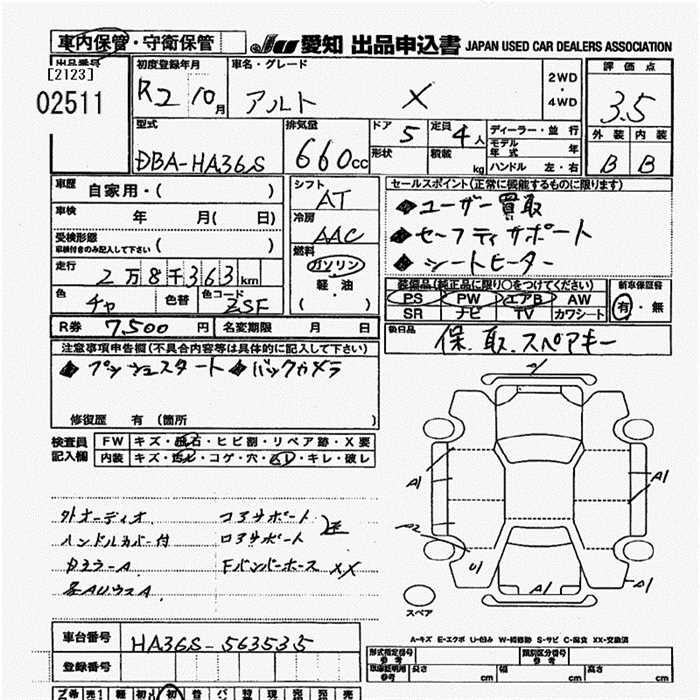 車内保管・守衛保管
JU 愛知 出品申込書 JAPAN USED CAR DEALERS ASSOCIATION
出品番号 初度登録年月 車名・グレード 2WD・4WD 評価点
[2123]
02511 R2 10月 アルト X 3.5
型式 排気量 ドア 5 定員 4人 ディーラー・並行 外装 内装
DBA-HA36S 660cc 形状 積載 kg モデル年式 年 B B
ハンドル 左・右
車歴 自家用・( )
シフト AT
セールスポイント(正常に機能するものに限ります)
車検 年 月( 日)
冷房 AAC
◆ユーザー買取
受検形態 ( )
車検付きのみ記入して下さい
◆セーフティサポート
走行 2万8千363km
燃料 ガソリン・軽・油 ( )
◆シートヒーター
色 チャ 色替 色コード ZSF
装備品(純正品に限り○をつけてください) 新車保証書
PS PW エアB AW 有・無
SR ナビ TV カワシート
R券 7,500円 名変期限 月 日
後日品 保.取.スペアキー
注意事項申告欄(不具合内容等は具体的に記入して下さい)
◆プッシュスタート ◆バックカメラ
修復歴 有 (箇所 )
検査員記入欄 FW キズ・飛石・ヒビ割・リペア跡・X要
内装 キズ・汚レ・コゲ・穴・スレ・キレ・破レ
A1 A1
A2
U1 A1 A1
スペア
外オーディオ コアサポート
ハンドルカバー付 ロアサポート
Dミラー A Fバンパーホース XX
各AUウスA
A-キズ E-エクボ U-凹み W-補修跡 S-サビ C-腐食 XX-交換済
車台番号 HA36S-563535
登録番号
形式指定番号 参考 類別区分番号 参考
車庫証明用 参考 長さ cm 幅 cm 高さ cm